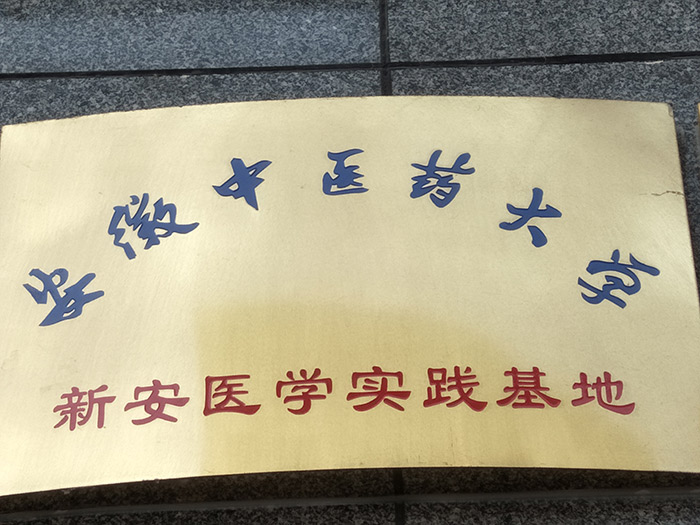 安徽中医药大学
新安医学实践基地